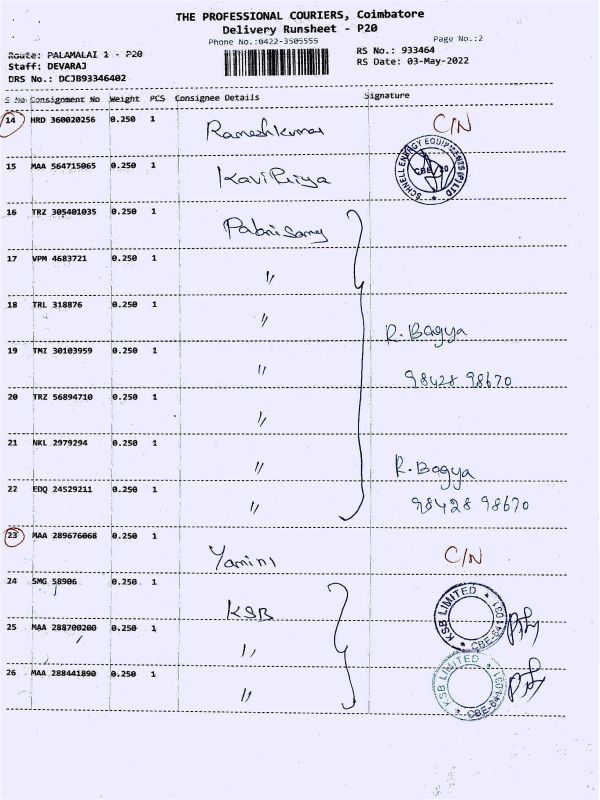 THE PROFESSIONAL COURIERS, Coimbatore
Delivery Runsheet - P20
Phone No.:0422-3505555 Page No.:2
Route: PALAMALAI 1 - P20 RS No.: 933464
Staff: DEVARAJ RS Date: 03-May-2022
DRS No.: DCJB93346402
S No Consignment No Weight PCS Consignee Details Signature
14 HRD 360020256 0.250 1 Rameshkumar C/N
15 MAA 564715065 0.250 1 KaviPriya SCHNELL ENERGY EQUIPMENTS (P) LTD CBE
16 TRZ 305401035 0.250 1 Palanisamy
17 VPM 4683721 0.250 1 "
18 TRL 318876 0.250 1 " R. Bagya
19 TMI 30103959 0.250 1 " 98428 98670
20 TRZ 56894710 0.250 1 "
21 NKL 2979294 0.250 1 " R. Bagya
22 EDQ 24529211 0.250 1 " 98428 98670
23 MAA 289676068 0.250 1 Yamini C/N
24 SMG 58906 0.250 1 KSB KSB LIMITED * CBE-641 031 *
25 MAA 288700200 0.250 1 "
26 MAA 288441890 0.250 1 " KSB LIMITED * CBE-641 031 *